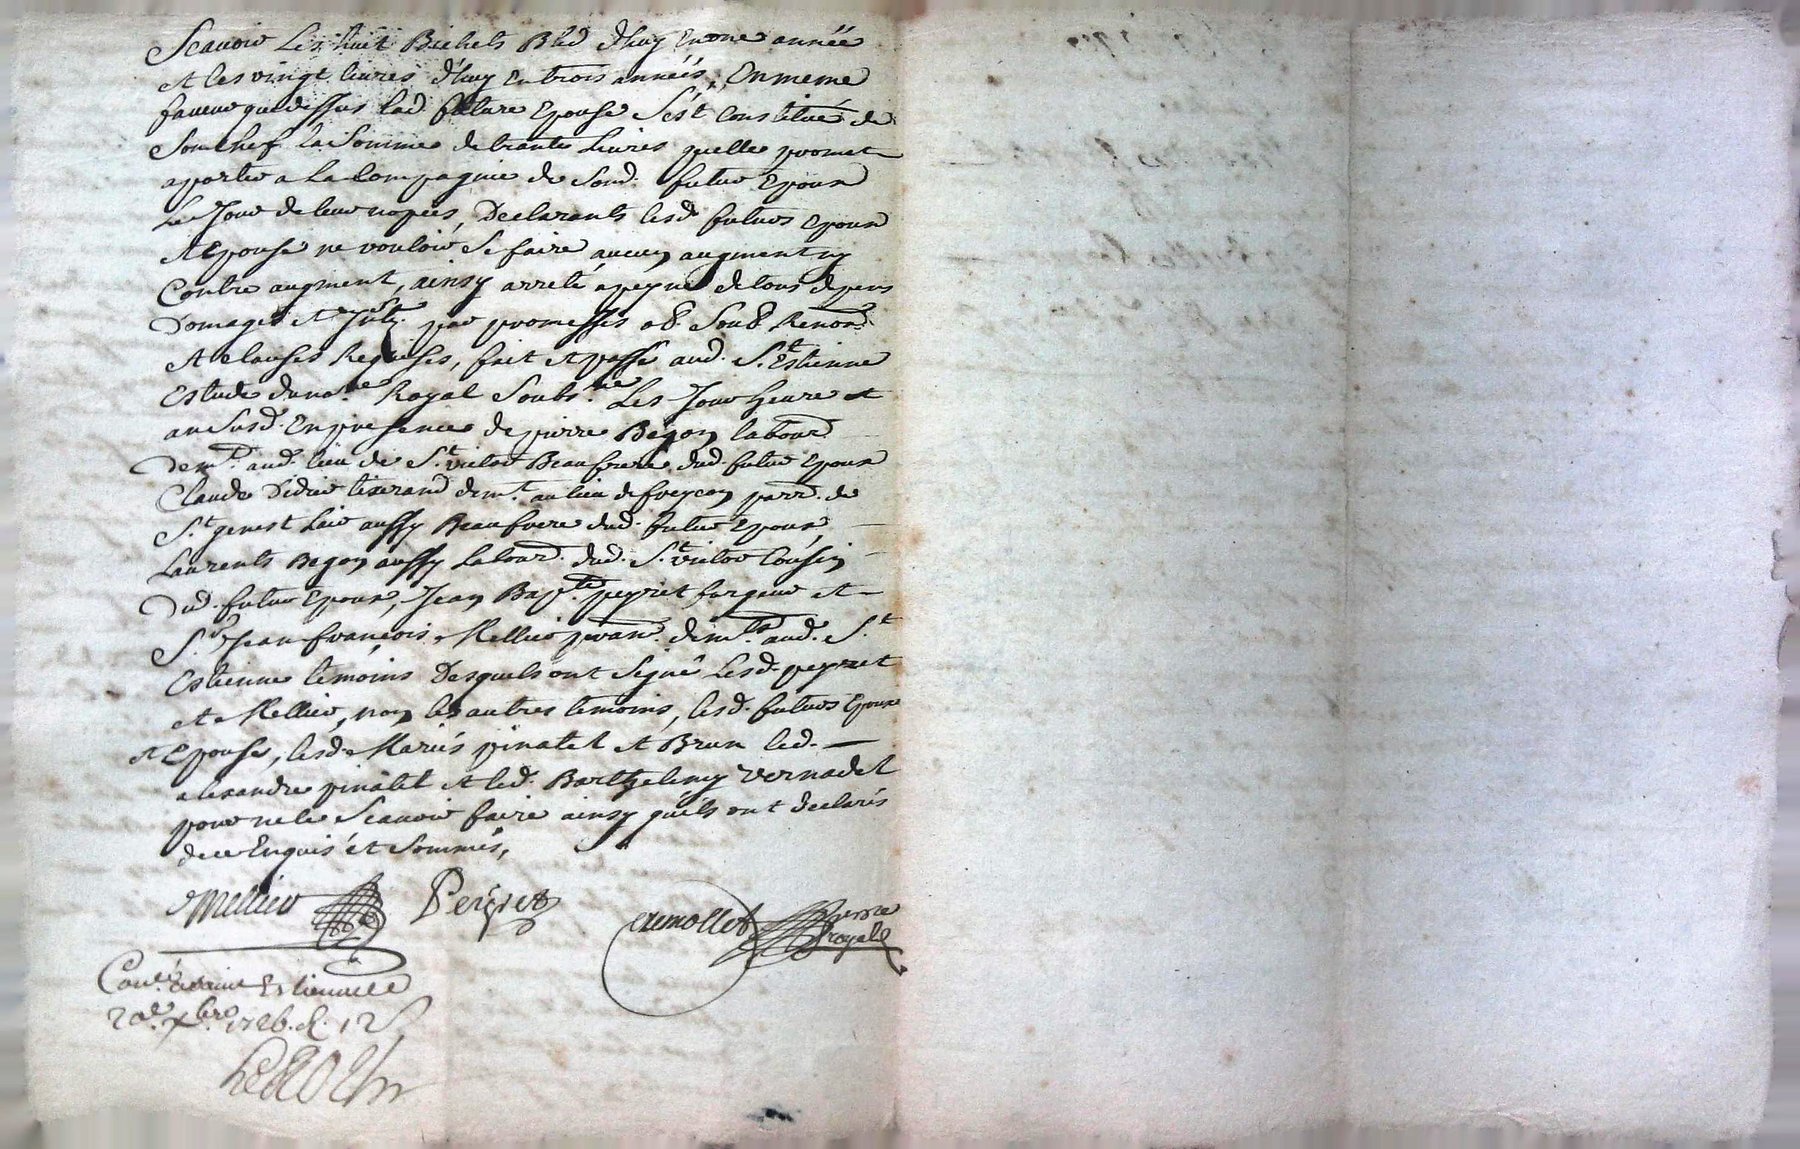 Scavoir Les huit Bichets Bled d'huy En une année
et les vingt livres d'huy en trois années, En meme
faveur que dessus lad future Epouse s'est Constitué de
Son chef la Somme de trante Livres quelle promet
aporter a La Compagnie de Sond. futur Epoux
Le Jour de leur nopces, Declarants lesd futurs epoux
et Epouse ne vouloir se faire aucun augment ny
Contre augment, ainsy arreté a peyne de tous depens
Domages et Jnts. par promesses ob. Soub. Renon.
et clauses Requises, fait et passé aud. St. Estienne
Estude du nore. Royal Soubs.né Les Jour heure et
an Susd. En presence de pierre Begon labour
demt. aud. lieu de St. victor Beaufrere dud. futur Epoux
Claude Didier tiserand demt. au lieu de freycon parr. de
St. genest Leir aussy Beaufrere dud. futur Epoux,
Laurents Begon aussy Labour. dud. St. victor Cousin
Dud. futur Epoux, Jean Bapte. peyret forgeur et
Sr. Jean françois Mellier pran. demts. aud. St.
Estienne temoins Desquels ont Signé Lesd. peyret
et Mellier, non les autres temoins, lesd. futurs Epoux
et Epouse, lesd. Mariés pinatel et Brun led.
alexandre pinatel et led. Barthelemy Vernadel
pour ne le Scavoir faire ainsy qu'ils ont declarés
de ce Enquis et Sommés,
Mellier Peyret
Cremollet nore royal
Con.lé a Saint Estienne le
20e. xbre 1726. R. 12 s